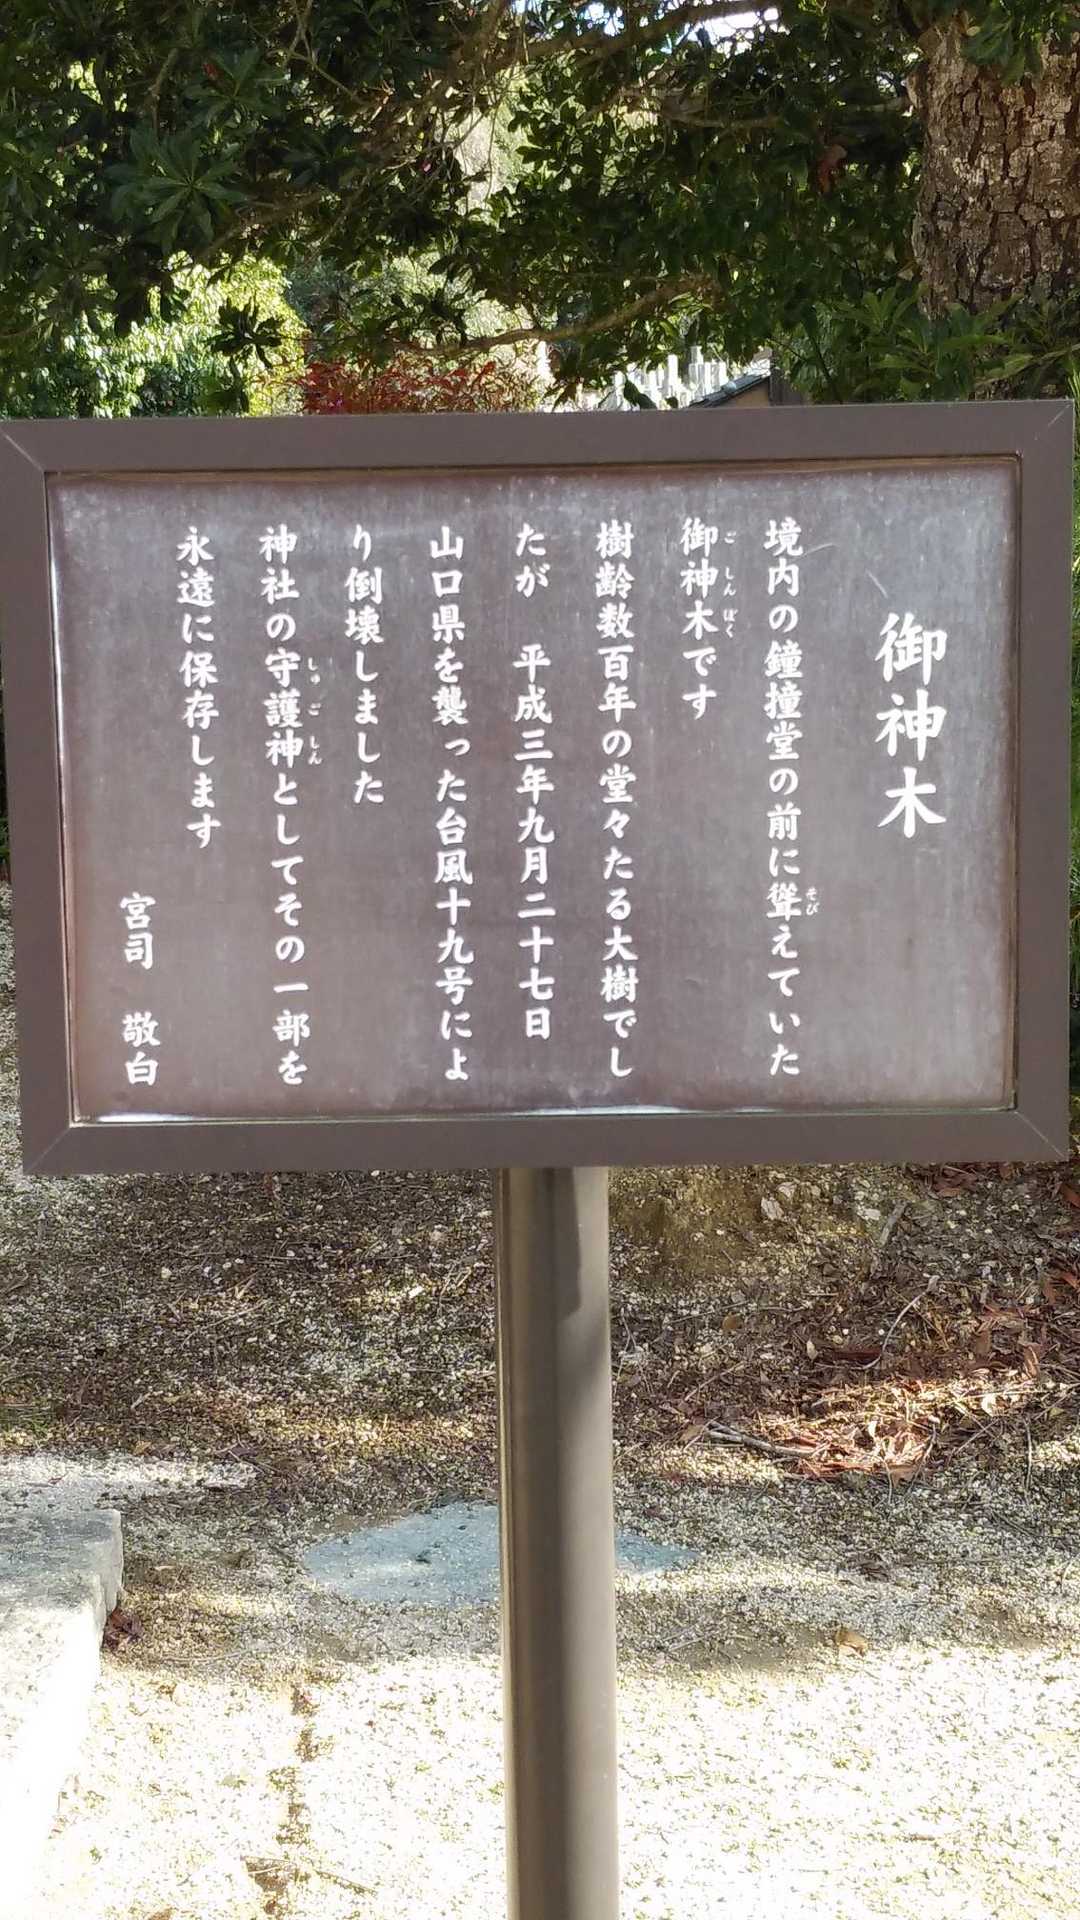 御神木
境内の鐘撞堂の前に聳えていた
御神木です
樹齢数百年の堂々たる大樹でし
たが　平成三年九月二十七日
山口県を襲った台風十九号によ
り倒壊しました
神社の守護神としてその一部を
永遠に保存します
宮司　敬白
そび
ごしんぼく
しゅごしん